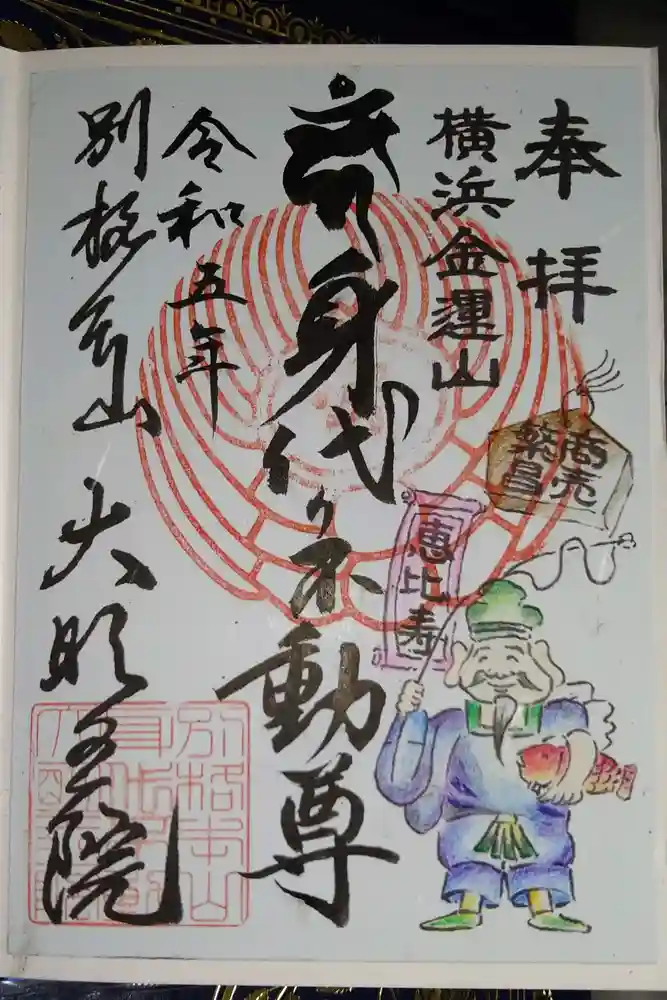 奉拝
横浜金運山
商売
繁昌
恵比寿
身代り不動尊
令和五年
別格本山 大明王院